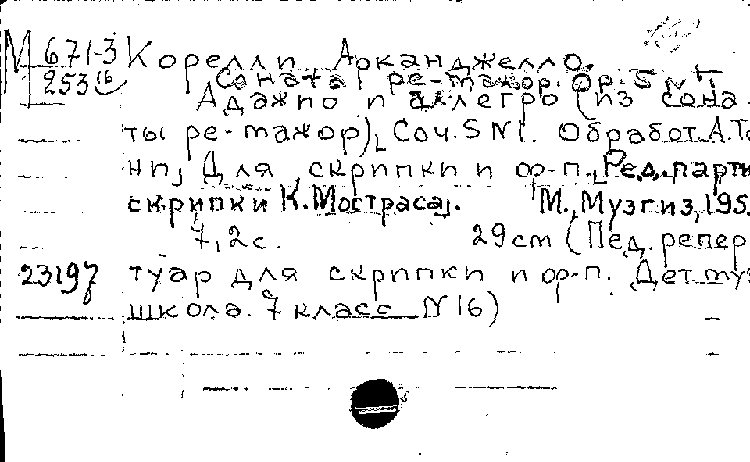 М 671-3 Корелли Арканджелло.
253 16 Соната ре-мажор. Ор. 5 N 1
Адажио и аллегро (из сона
ты ре-мажор), Соч. 5 N1. Обработ. А. То
ни, Для скрипки и ф-п., Ред. парти
скрипки К. Мостраса]. М., Музгиз, 195
7, 2 с. 29 см (Пед. репер
23197 туар для скрипки и ф-п. Дет. муз
школа. 7 класс N 16)